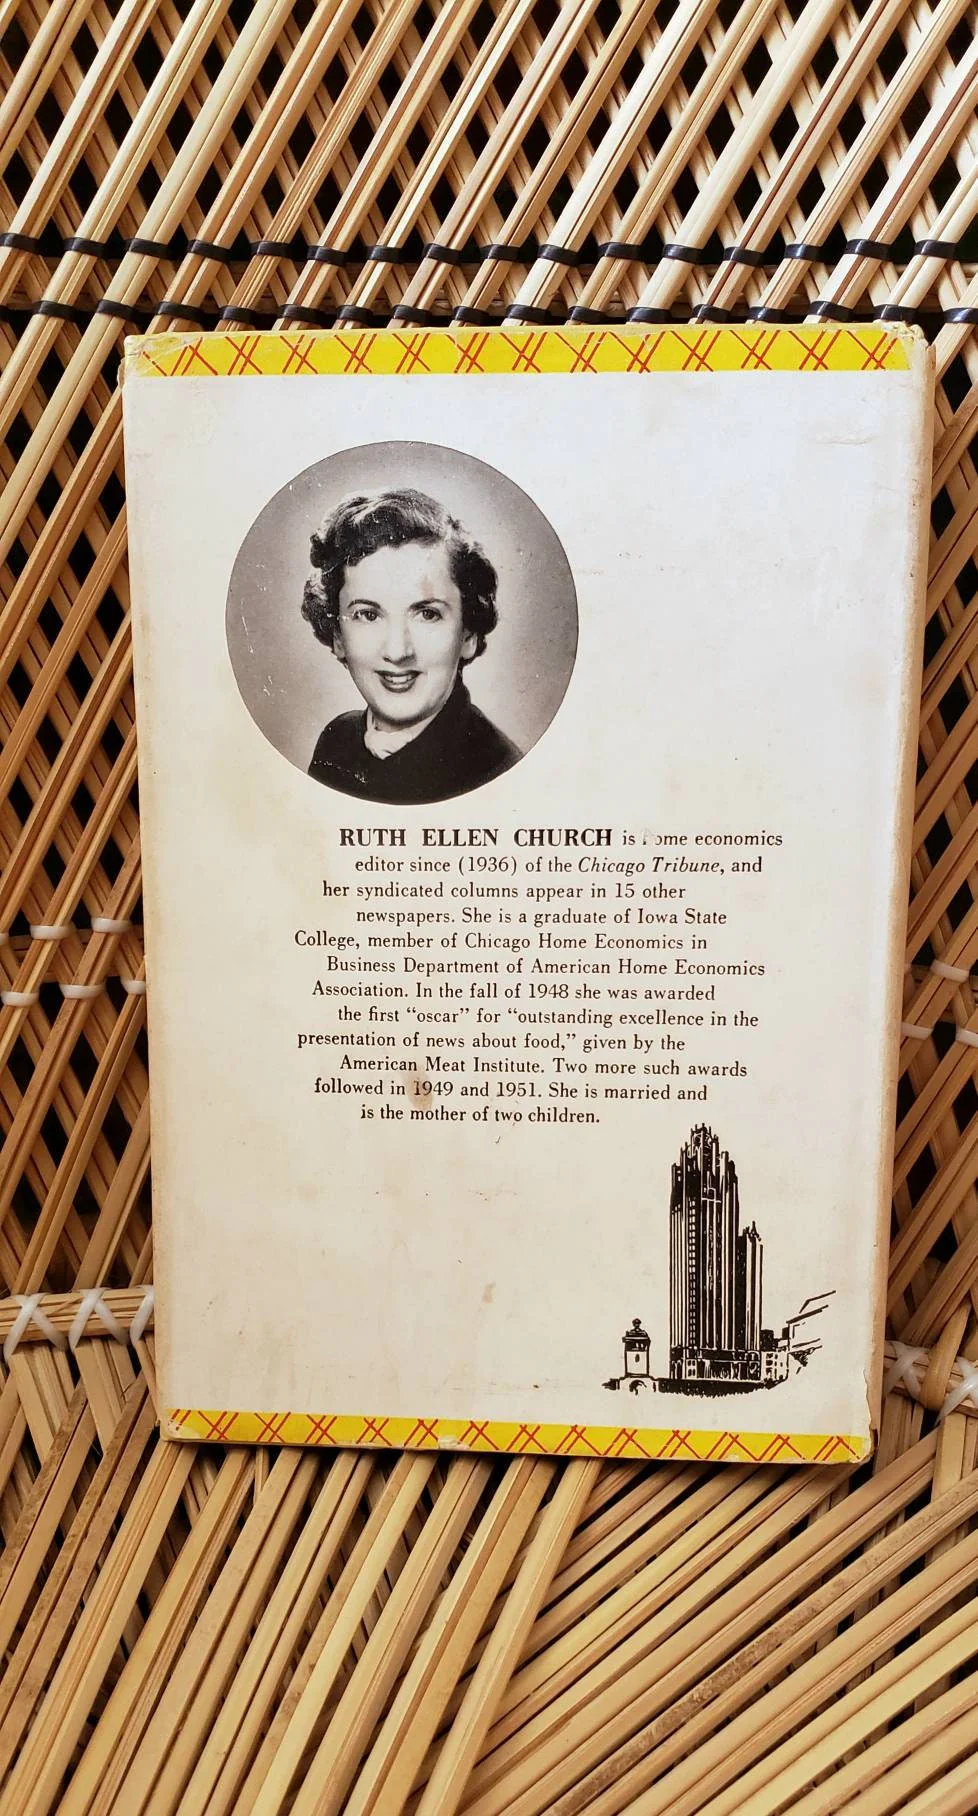 RUTH ELLEN CHURCH is home economics
editor since (1936) of the Chicago Tribune, and
her syndicated columns appear in 15 other
newspapers. She is a graduate of Iowa State
College, member of Chicago Home Economics in
Business Department of American Home Economics
Association. In the fall of 1948 she was awarded
the first “oscar” for “outstanding excellence in the
presentation of news about food,” given by the
American Meat Institute. Two more such awards
followed in 1949 and 1951. She is married and
is the mother of two children.